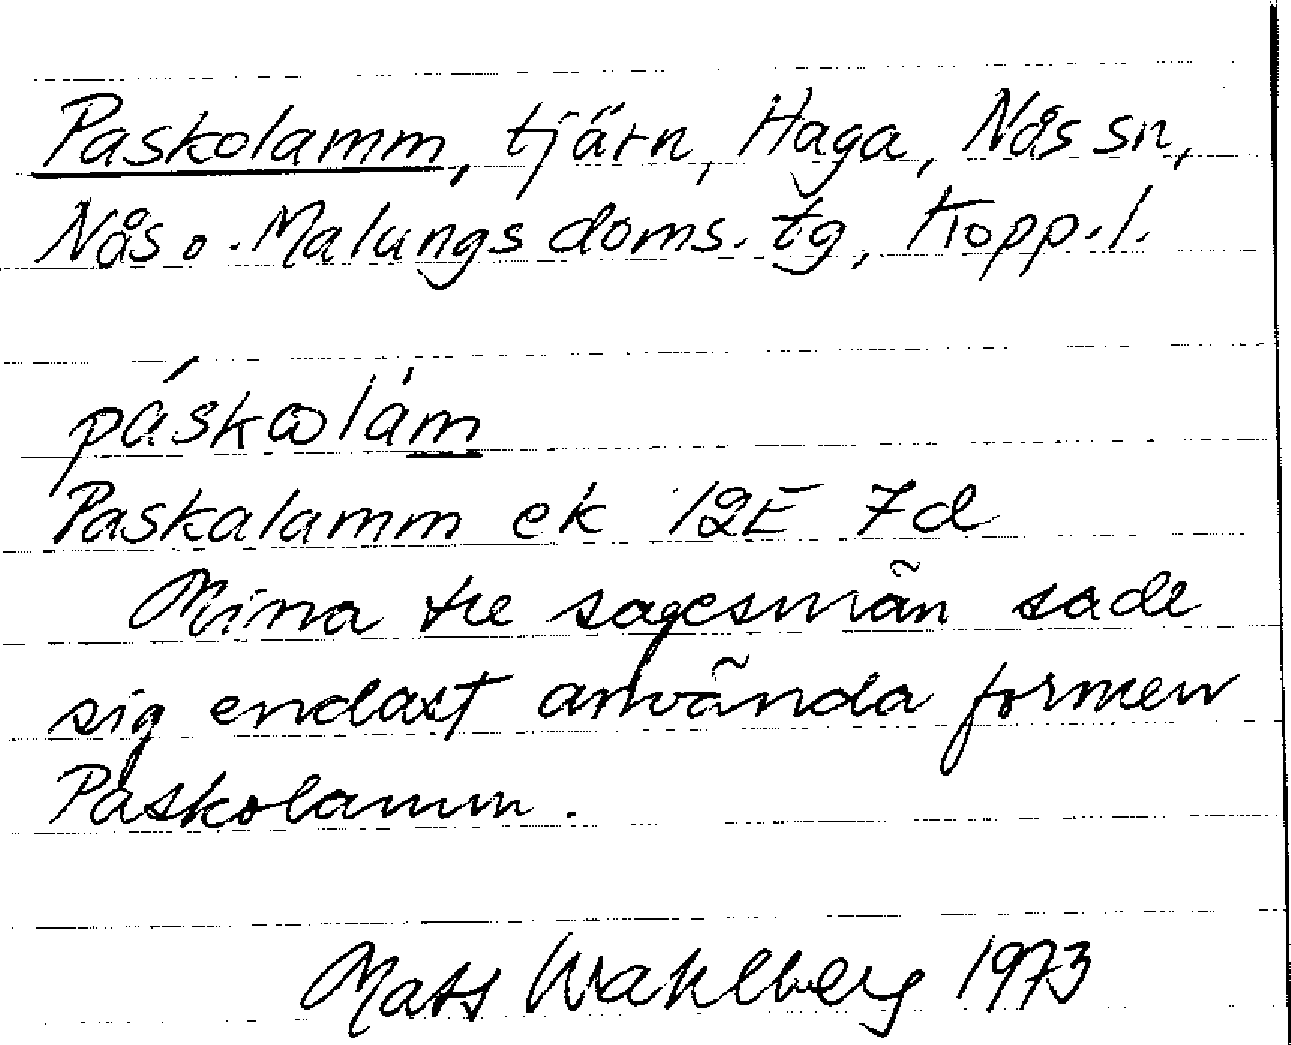 Paskolamm, tjärn, Haga, Nås sn,
Nås o. Malungs doms. tg, Kopp.l.
páskꝏlám
Paskalamm ek 12E 7d
Mina tre sagesmän sade
sig endast använda formen
Paskolamm.
Mats Wahlberg 1973